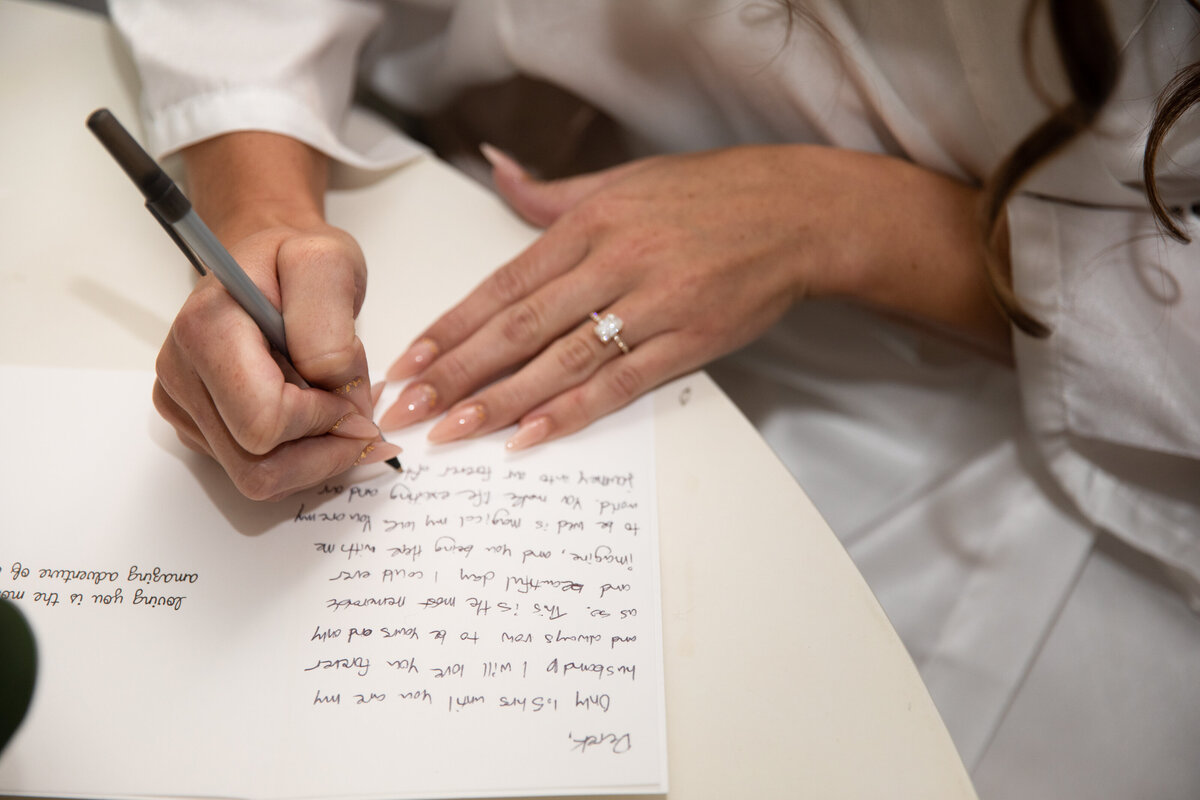 loving you is the mo
amazing adventure of
Derek,
Only 1.5hrs until you are my
husband I will love you forever
and always vow to be yours and only
This is the most
and beautiful day I could ever
imagine, and you being Here with me
to be wed is magical my love. You are my
world. You make life exciting and our
journey into our forever of